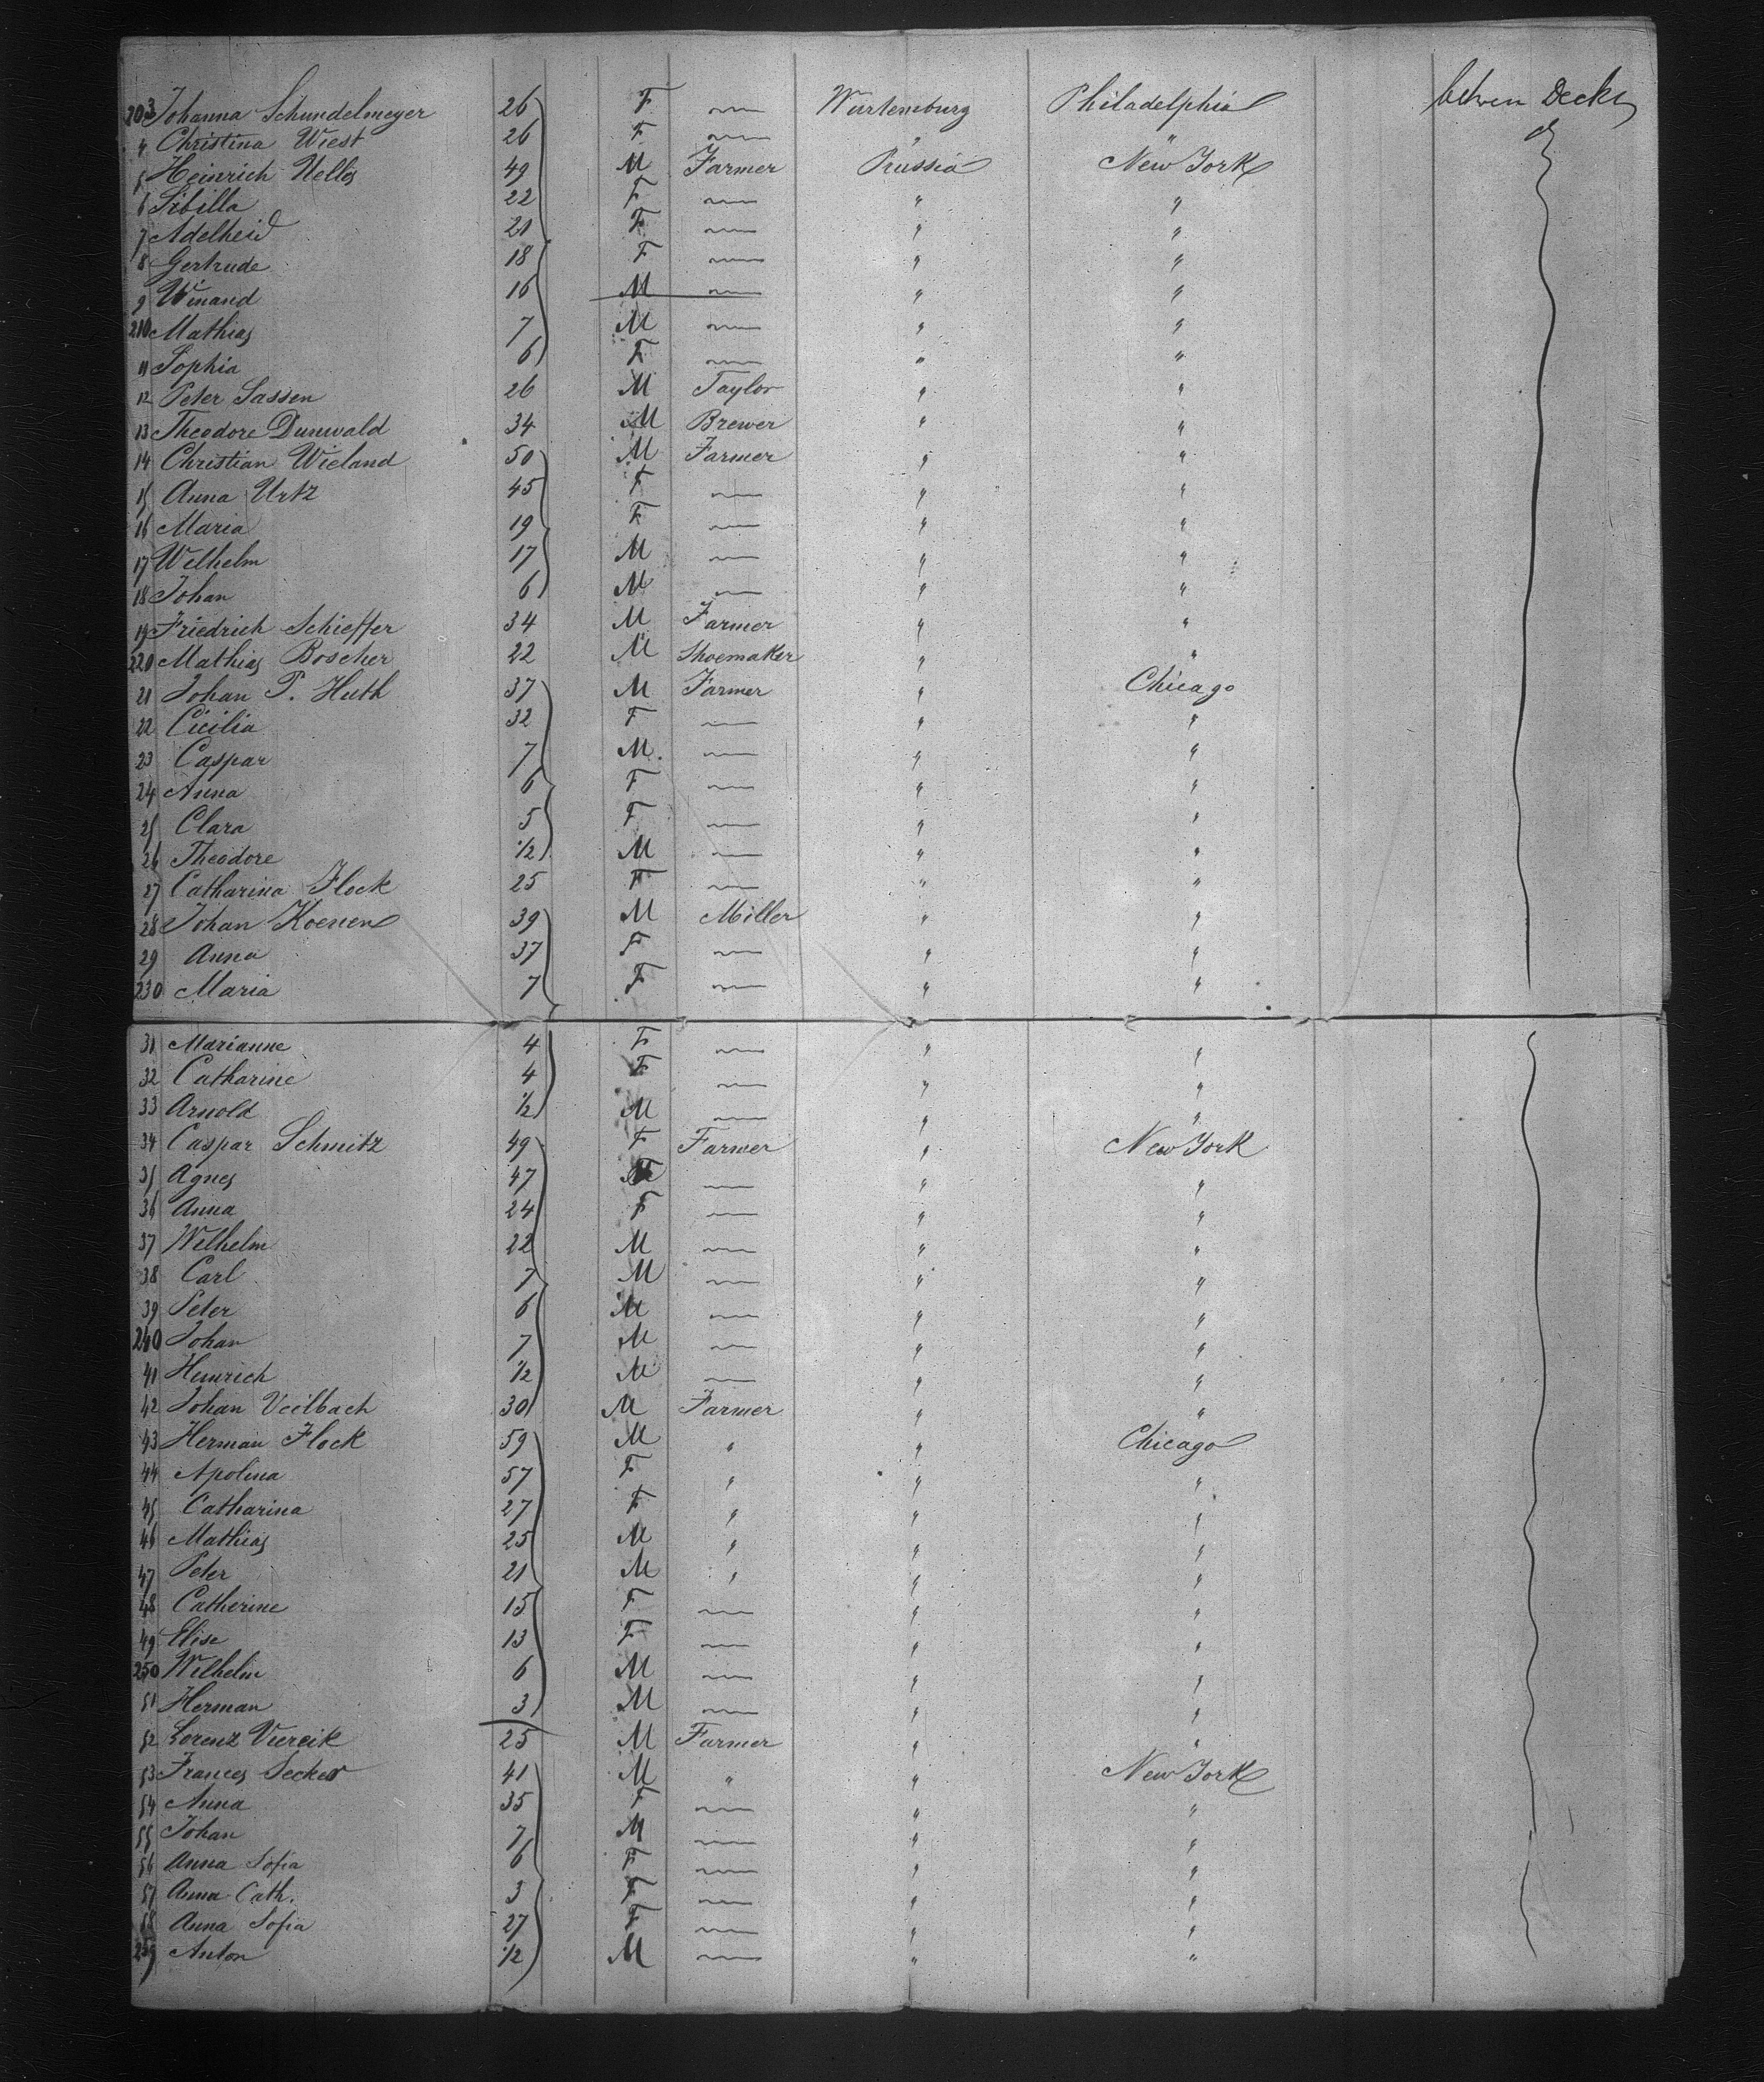 203 Johanna Schundelmeyer 26 F — Wurtemburg Philadelphia betwen Decks
4 Christina Wiest 26 F — " "
5 Heinrich Nellis 49 M Farmer Prussia New York
6 Sibilla 22 F — " "
7 Adelheid 21 F — " "
8 Gertrude 18 F — " "
9 Winand 16 M — " "
210 Mathias 7 M — " "
11 Sophia 6 F — " "
12 Peter Sassen 26 M Taylor " "
13 Theodore Dunwald 34 M Brewer " "
14 Christian Wieland 50 M Farmer " "
15 Anna Urtz 45 F — " "
16 Maria 19 F — " "
17 Wilhelm 17 M — " "
18 Johan 6 M — " "
19 Friedrich Schieffer 34 M Farmer " "
220 Mathias Boscher 22 M Shoemaker " "
21 Johan P. Huth 37 M Farmer " Chicago
22 Cicilia 32 F — " "
23 Caspar 7 M. — " "
24 Anna 6 F — " "
25 Clara 5 F — " "
26 Theodore 1/2 M — " "
27 Catharina Flock 25 F — " "
28 Johan Koenen 39 M Miller " "
29 Anna 37 F — " "
230 Maria 7 F — " "
31 Marianne 4 F — " "
32 Catharine 4 F — " "
33 Arnold 1/2 M — " "
34 Caspar Schmitz 49 F Farmer " New York
35 Agnes 47 — " "
36 Anna 24 F — " "
37 Wilhelm 22 M — " "
38 Carl 7 M — " "
39 Peter 6 M — " "
240 Johan 7 M — " "
41 Heinrich 1/2 M — " "
42 Johan Veilbach 30 M Farmer " "
43 Herman Flock 59 M " " Chicago
44 Apolina 57 F " " "
45 Catharina 27 F " " "
46 Mathias 25 M " " "
47 Peter 21 M " " "
48 Catherine 15 F — " "
49 Elise 13 F — " "
250 Wilhelm 6 M — " "
51 Herman 3 M — " "
52 Lorenz Viercik 25 M Farmer " "
53 Frances Secker 41 M " " New York
54 Anna 35 F — " "
55 Johan 7 M — " "
56 Anna Sofia 6 F — " "
57 Anna Cath. 3 F — " "
58 Anna Sofia 27 F — " "
259 Anton 1/2 M — " "